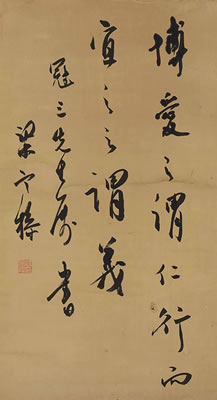 博愛之謂仁行而
宜之之謂義
冠三先生属書
梁寒操